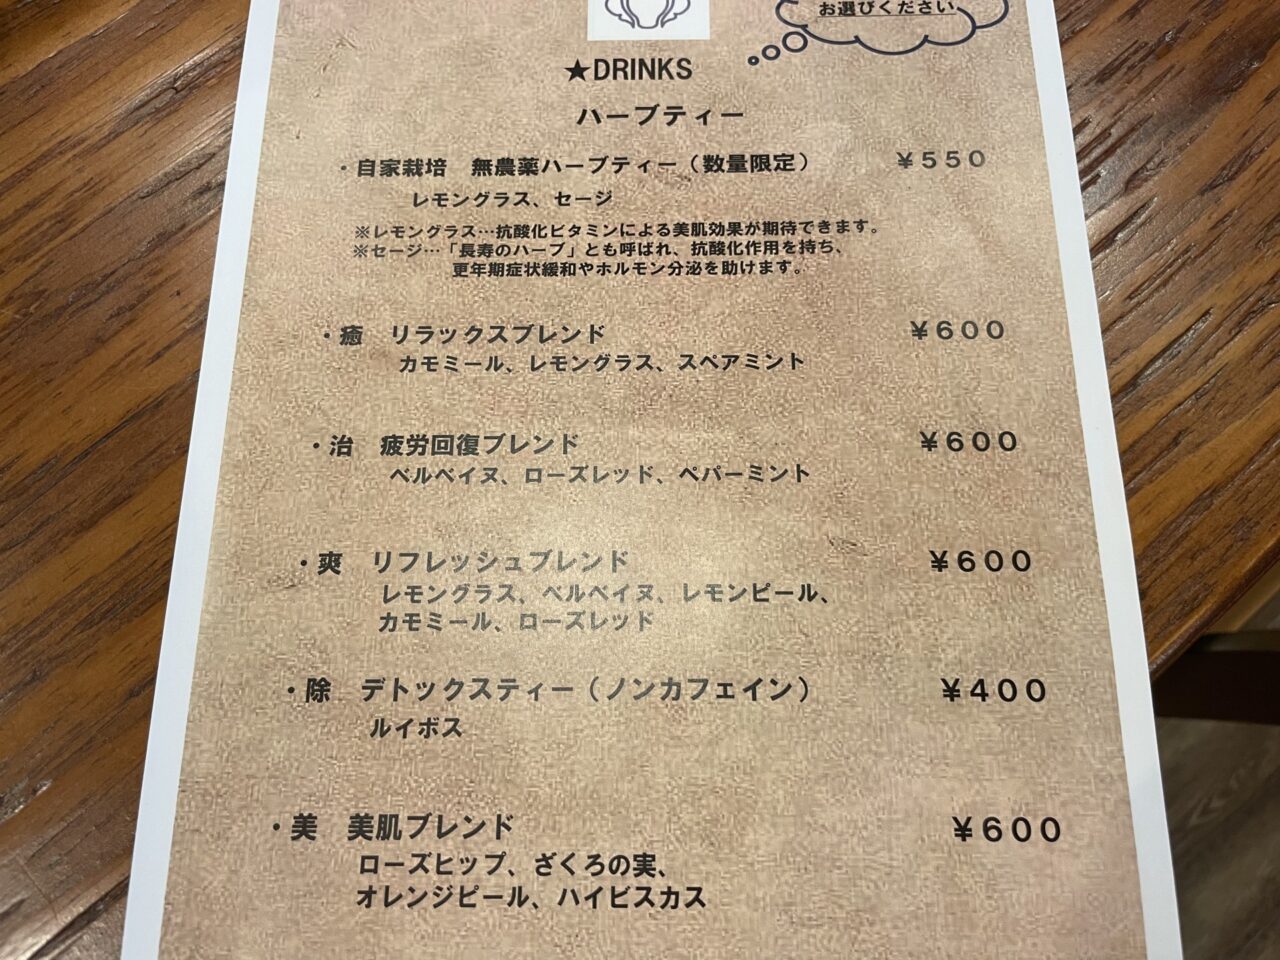 お選びください
★DRINKS
ハーブティー
・自家栽培　無農薬ハーブティー（数量限定）　￥５５０
レモングラス、セージ
※レモングラス…抗酸化ビタミンによる美肌効果が期待できます。
※セージ…「長寿のハーブ」とも呼ばれ、抗酸化作用を持ち、
更年期症状緩和やホルモン分泌を助けます。
・癒　リラックスブレンド　￥６００
カモミール、レモングラス、スペアミント
・治　疲労回復ブレンド　￥６００
ベルベイヌ、ローズレッド、ペパーミント
・爽　リフレッシュブレンド　￥６００
レモングラス、ベルベイヌ、レモンピール、
カモミール、ローズレッド
・除　デトックスティー（ノンカフェイン）　￥４００
ルイボス
・美　美肌ブレンド　￥６００
ローズヒップ、ざくろの実、
オレンジピール、ハイビスカス